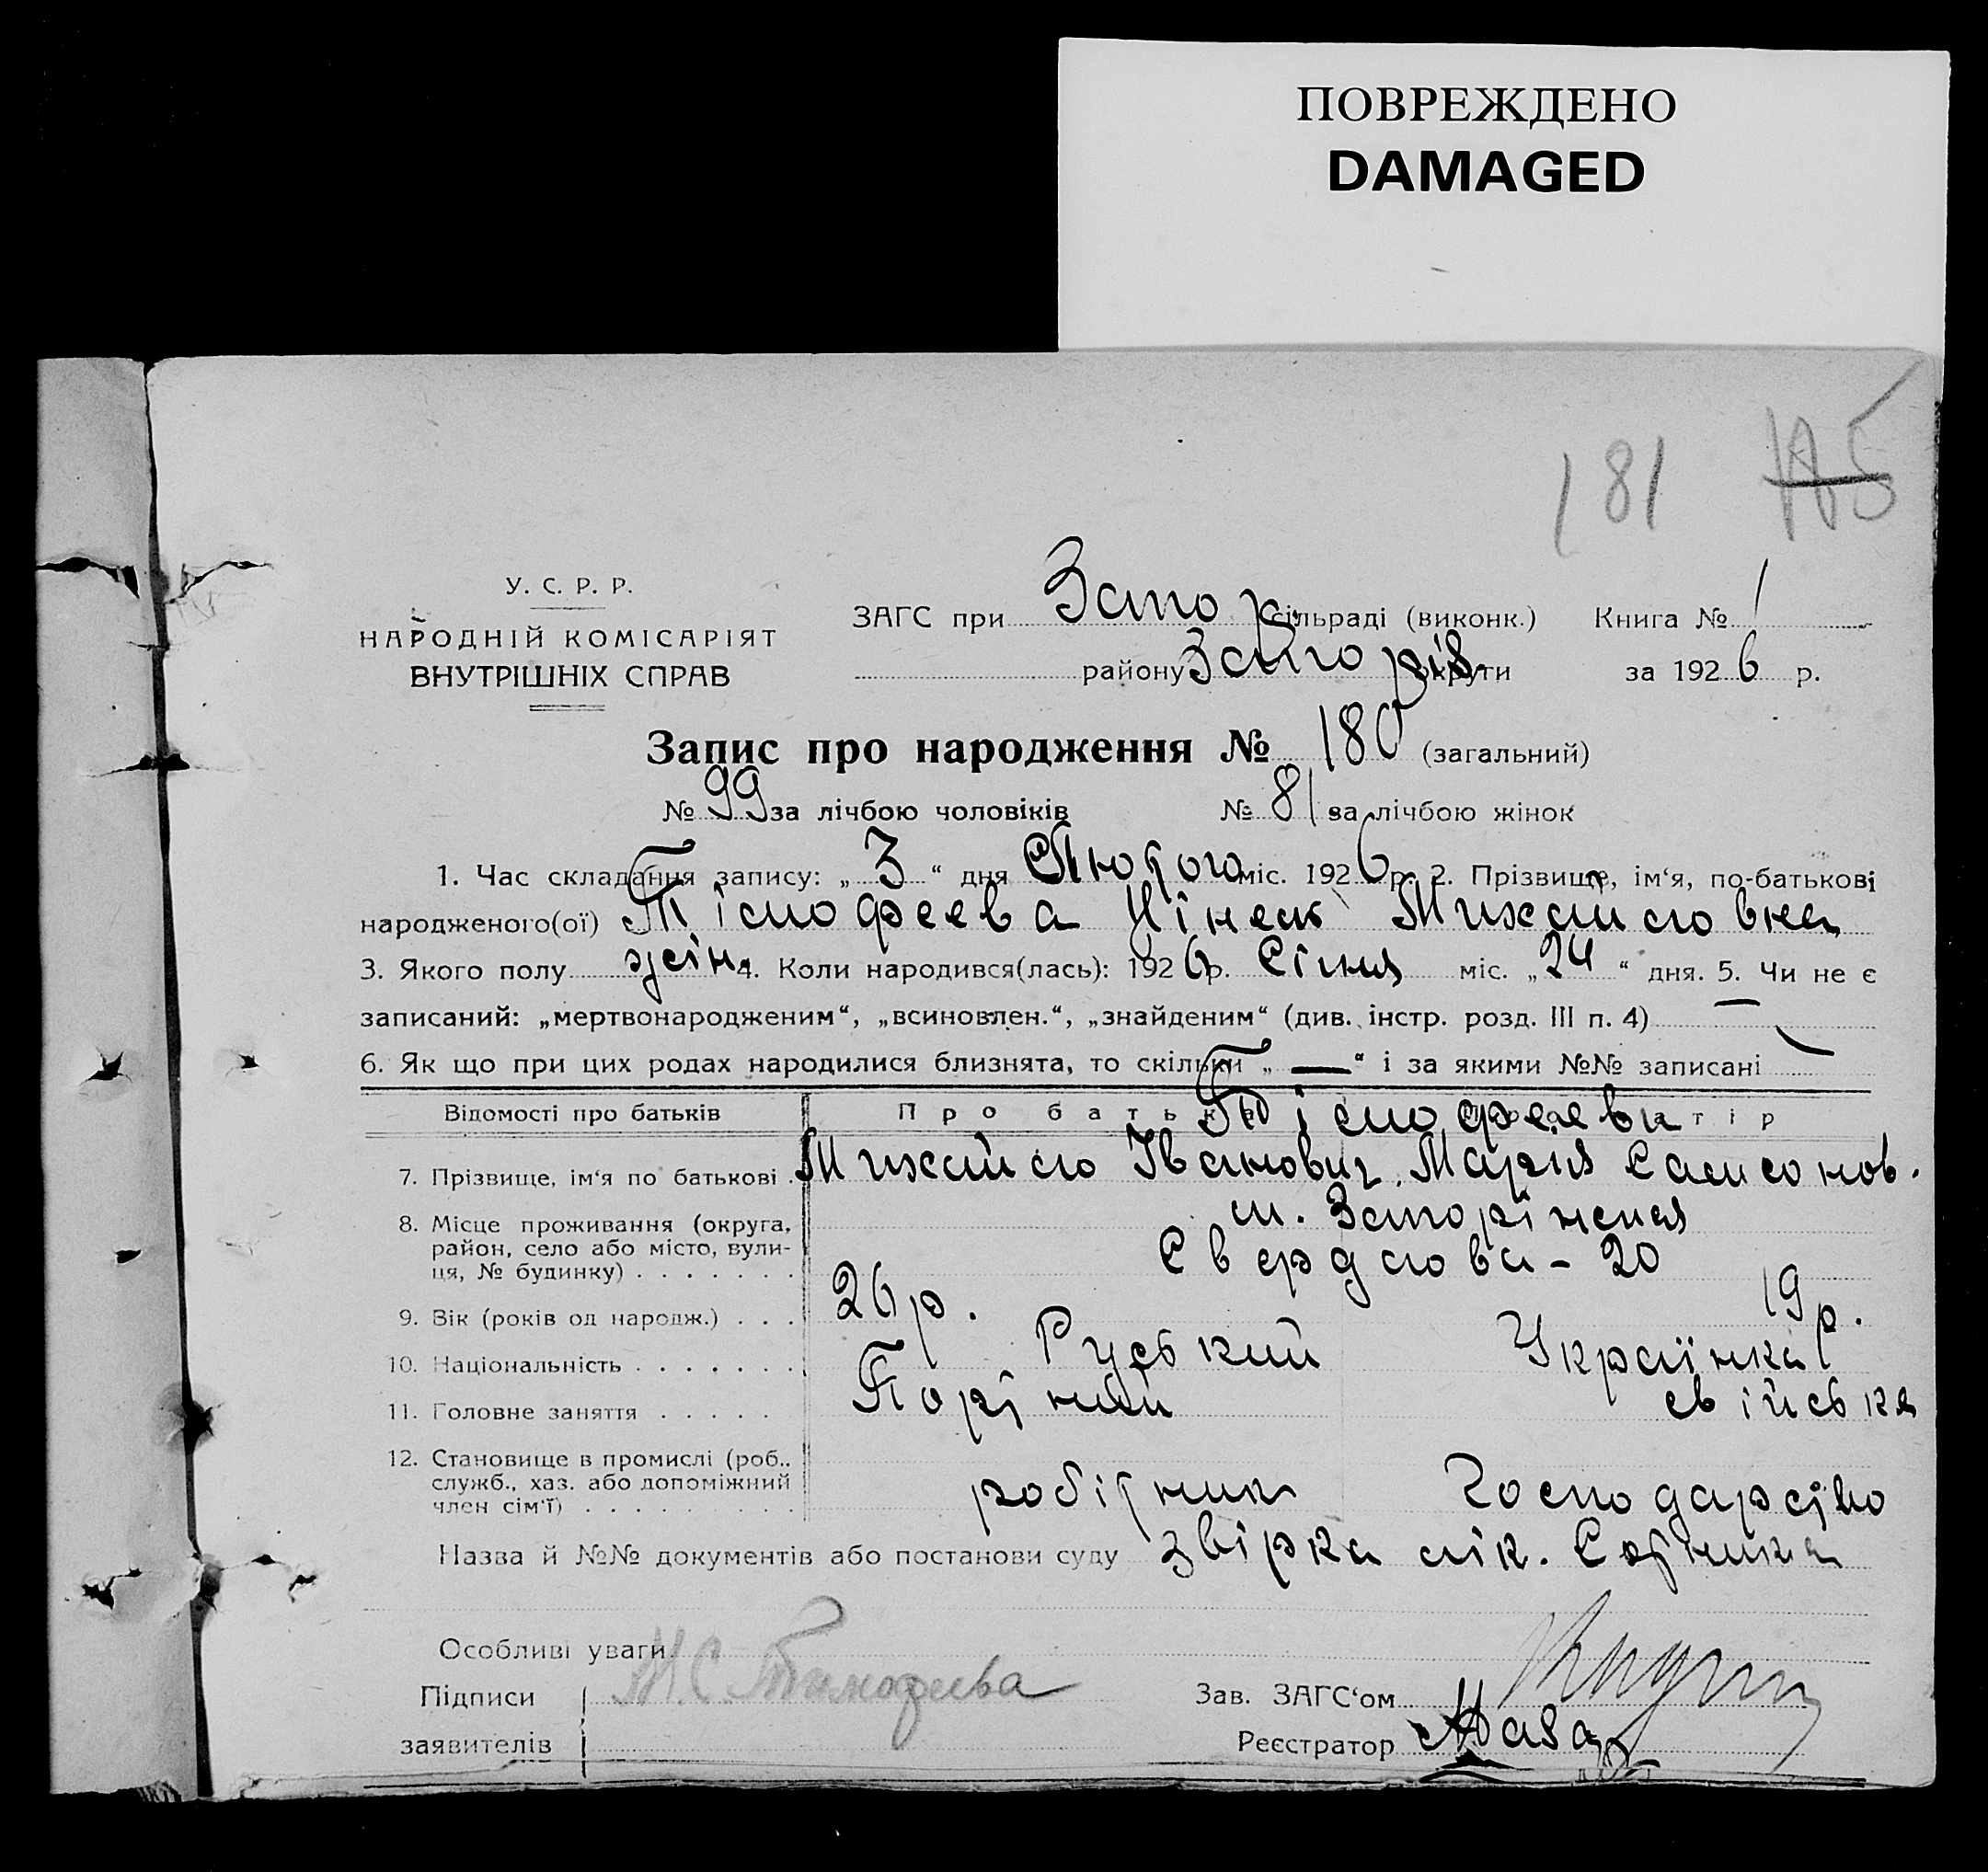 ПОВРЕЖДЕНО
DAMAGED
181
У. С. Р. Р.
НАРОДНІЙ КОМІСАРІЯТ
ВНУТРІШНІХ СПРАВ
ЗАГС при Запор. сільраді (виконк.) Книга № 1
району Запоріз. округи за 1926 р.
Запис про народження № 180 (загальний)
№ 99 за лічбою чоловіків № 81 за лічбою жінок
1. Час складання запису: „3“ дня Лютого міс. 1926 р. 2. Прізвище, ім‘я, по-батькові
народженого(ої) Тімофеева Нінель Михайловна
3. Якого полу жін. 4. Коли народився(лась): 1926 р. Січня міс. „24“ дня. 5. Чи не є
записаний: „мертвонародженим“, „всиновлен.“, „знайденим“ (див. інстр. розд. III п. 4) —
6. Як що при цих родах народилися близнята, то скільки „—“ і за якими №№ записані —
Відомості про батьків Про батька Тімофееви
7. Прізвище, ім‘я по батькові Михайло Іванович, Мария Самсонов.
8. Місце проживання (округа, район, село або місто, вулиця, № будинку) м. Запоріжжя
Свердлова - 20
9. Вік (років од народж.) 26 р. 19 р.
10. Національність Руський Українка
11. Головне заняття свійська
12. Становище в промислі (роб., служб., хаз. або допоміжний член сім‘ї) робітник господарство
Назва й №№ документів або постанови суду звірка лік.
Особливі уваги
Підписи М. С. Тимофеева Зав. ЗАГС‘ом
заявителів Реєстратор